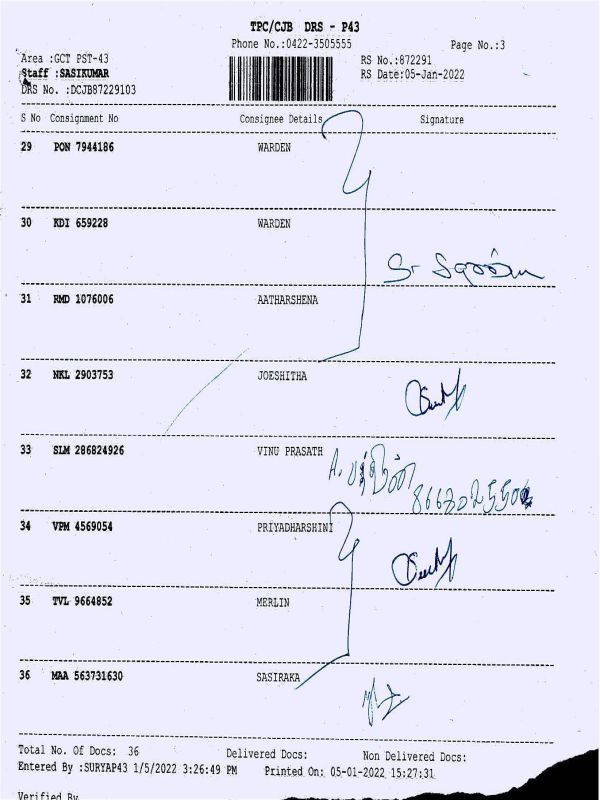 TPC/CJB DRS - P43
Phone No.:0422-3505555 Page No.:3
Area :GCT PST-43 RS No.:872291
Staff :SASIKUMAR RS Date:05-Jan-2022
DRS No. :DCJB87229103
S No Consignment No Consignee Details Signature
29 PON 7944186 WARDEN
30 KDI 659228 WARDEN
31 RMD 1076006 AATHARSHENA
32 NKL 2903753 JOESHITHA
33 SLM 286824926 VINU PRASATH
34 VPM 4569054 PRIYADHARSHINI
35 TVL 9664852 MERLIN
36 MAA 563731630 SASIRAKA
Total No. Of Docs: 36 Delivered Docs: Non Delivered Docs:
Entered By :SURYAP43 1/5/2022 3:26:49 PM Printed On: 05-01-2022 15:27:31
Verified By